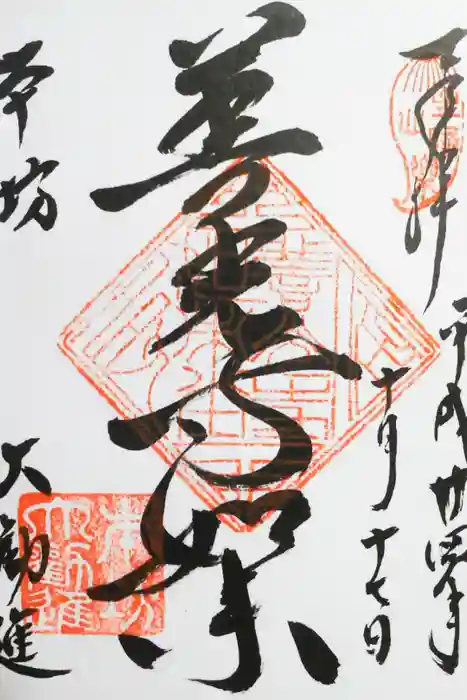 奉拝
平成廿四年
十月十七日
善光寺如来
本坊
大勧進